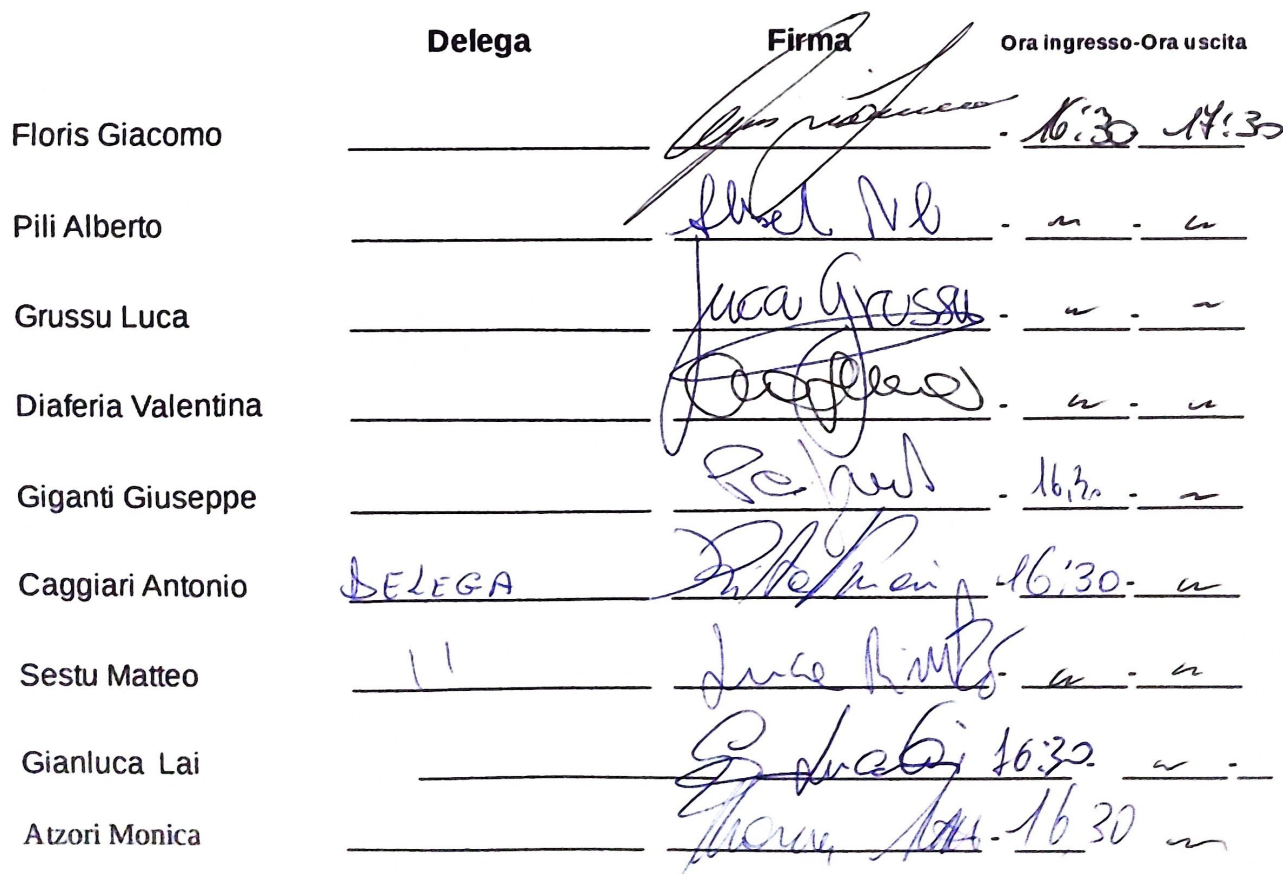 Delega Firma Ora ingresso-Ora uscita
Floris Giacomo - 16:30 17:30
Pili Alberto - " - "
Grussu Luca Luca Grussu - " - "
Diaferia Valentina - " - "
Giganti Giuseppe - 16,30 - "
Caggiari Antonio DELEGA - 16:30 - "
Sestu Matteo " Luca - " - "
Gianluca Lai Gianluca Lai 16:30 - " -
Atzori Monica Monica - 16 30 "